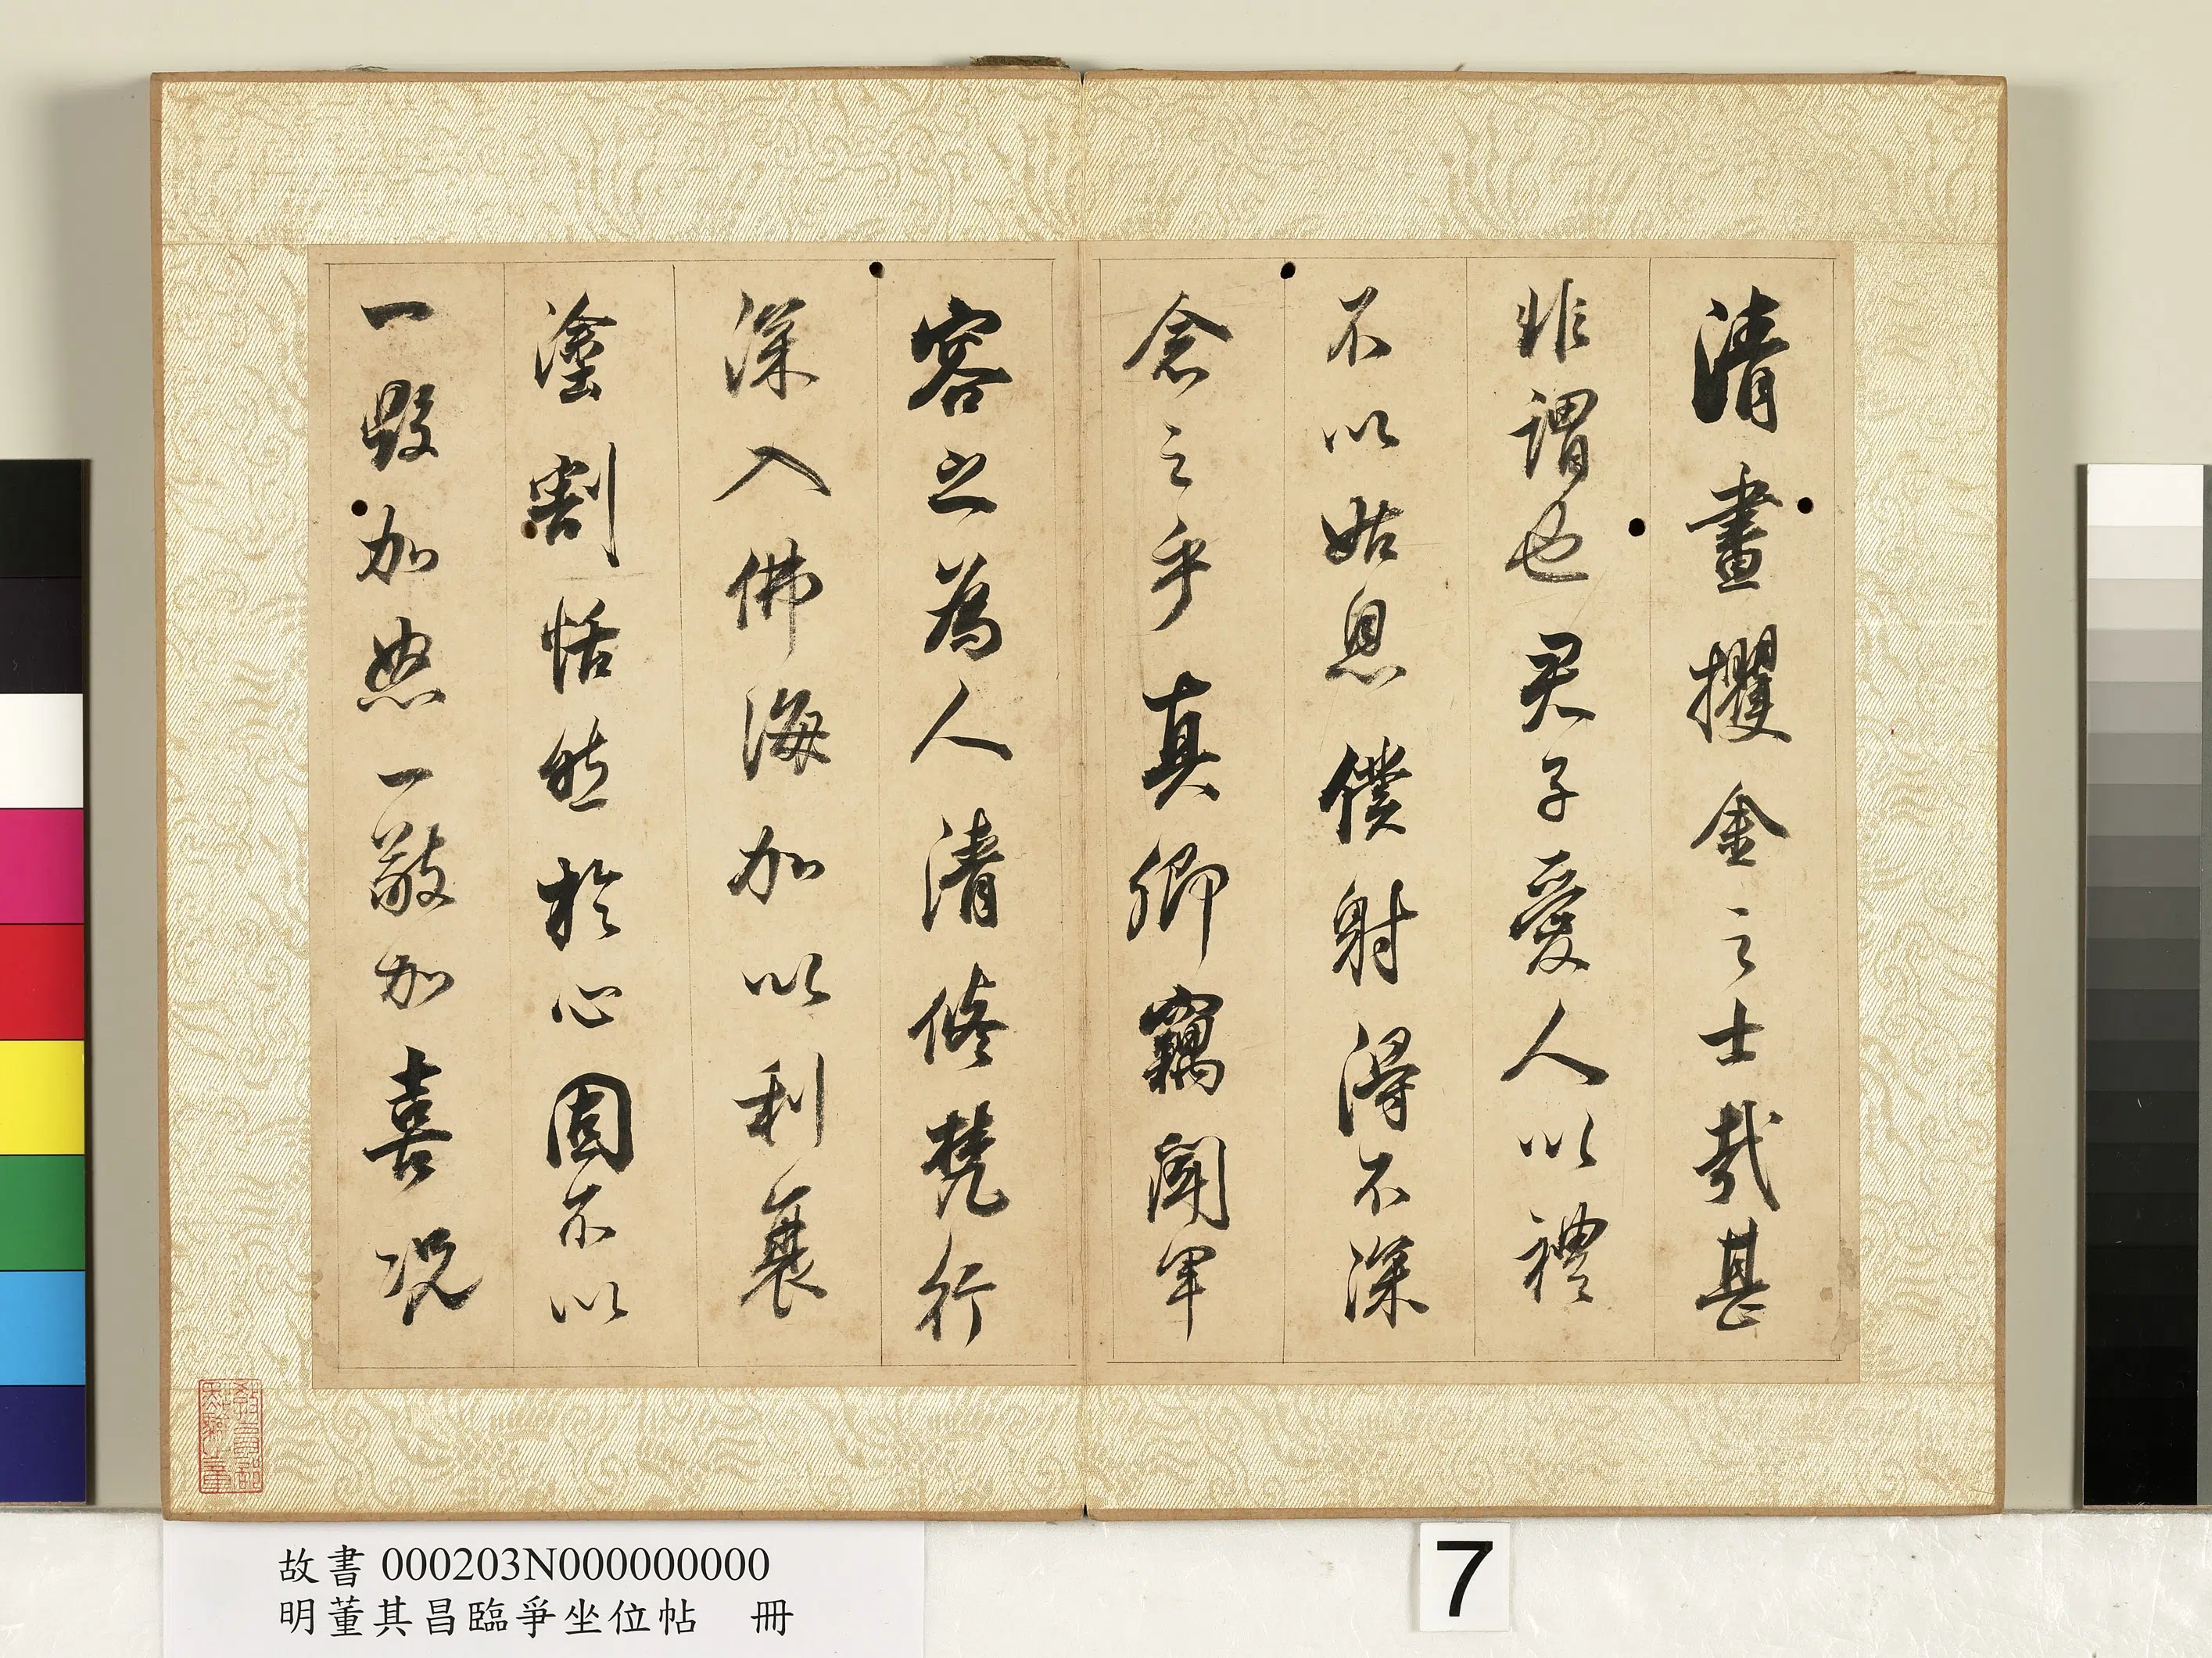 清晝攫金之士哉甚
非謂也君子愛人以禮
不以姑息僕射得不深
念之乎真卿竊聞軍
容之為人清修梵行
深入佛海加以利衰
塗割恬然於心固不以
一毀加怒一敬加喜況
教育部
點驗之章
故書 000203N000000000
明董其昌臨爭坐位帖 冊
7